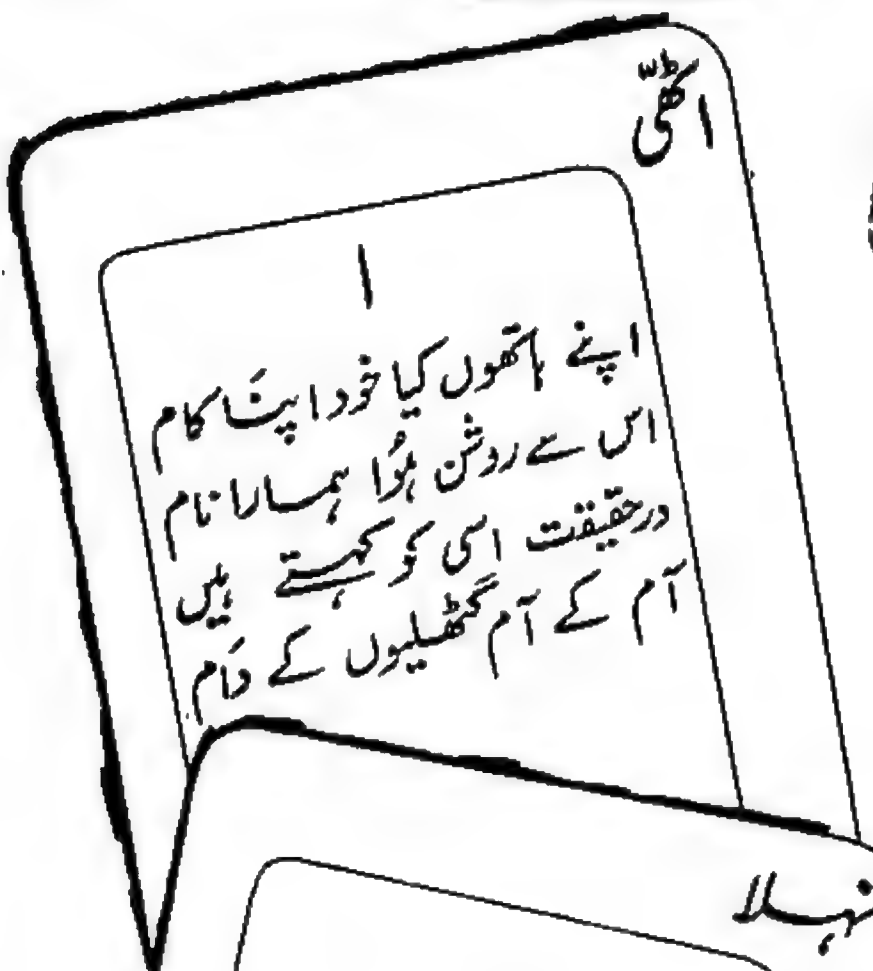 اکھّی
۱
اپنے ہاتھوں کیا خود اپنَا کام
اس سے روشن ہُوا ہمارا نام
درحقیقت اسی کو کہتے ہیں
آم کے آم گٹھلیوں کے دَام
نہلا